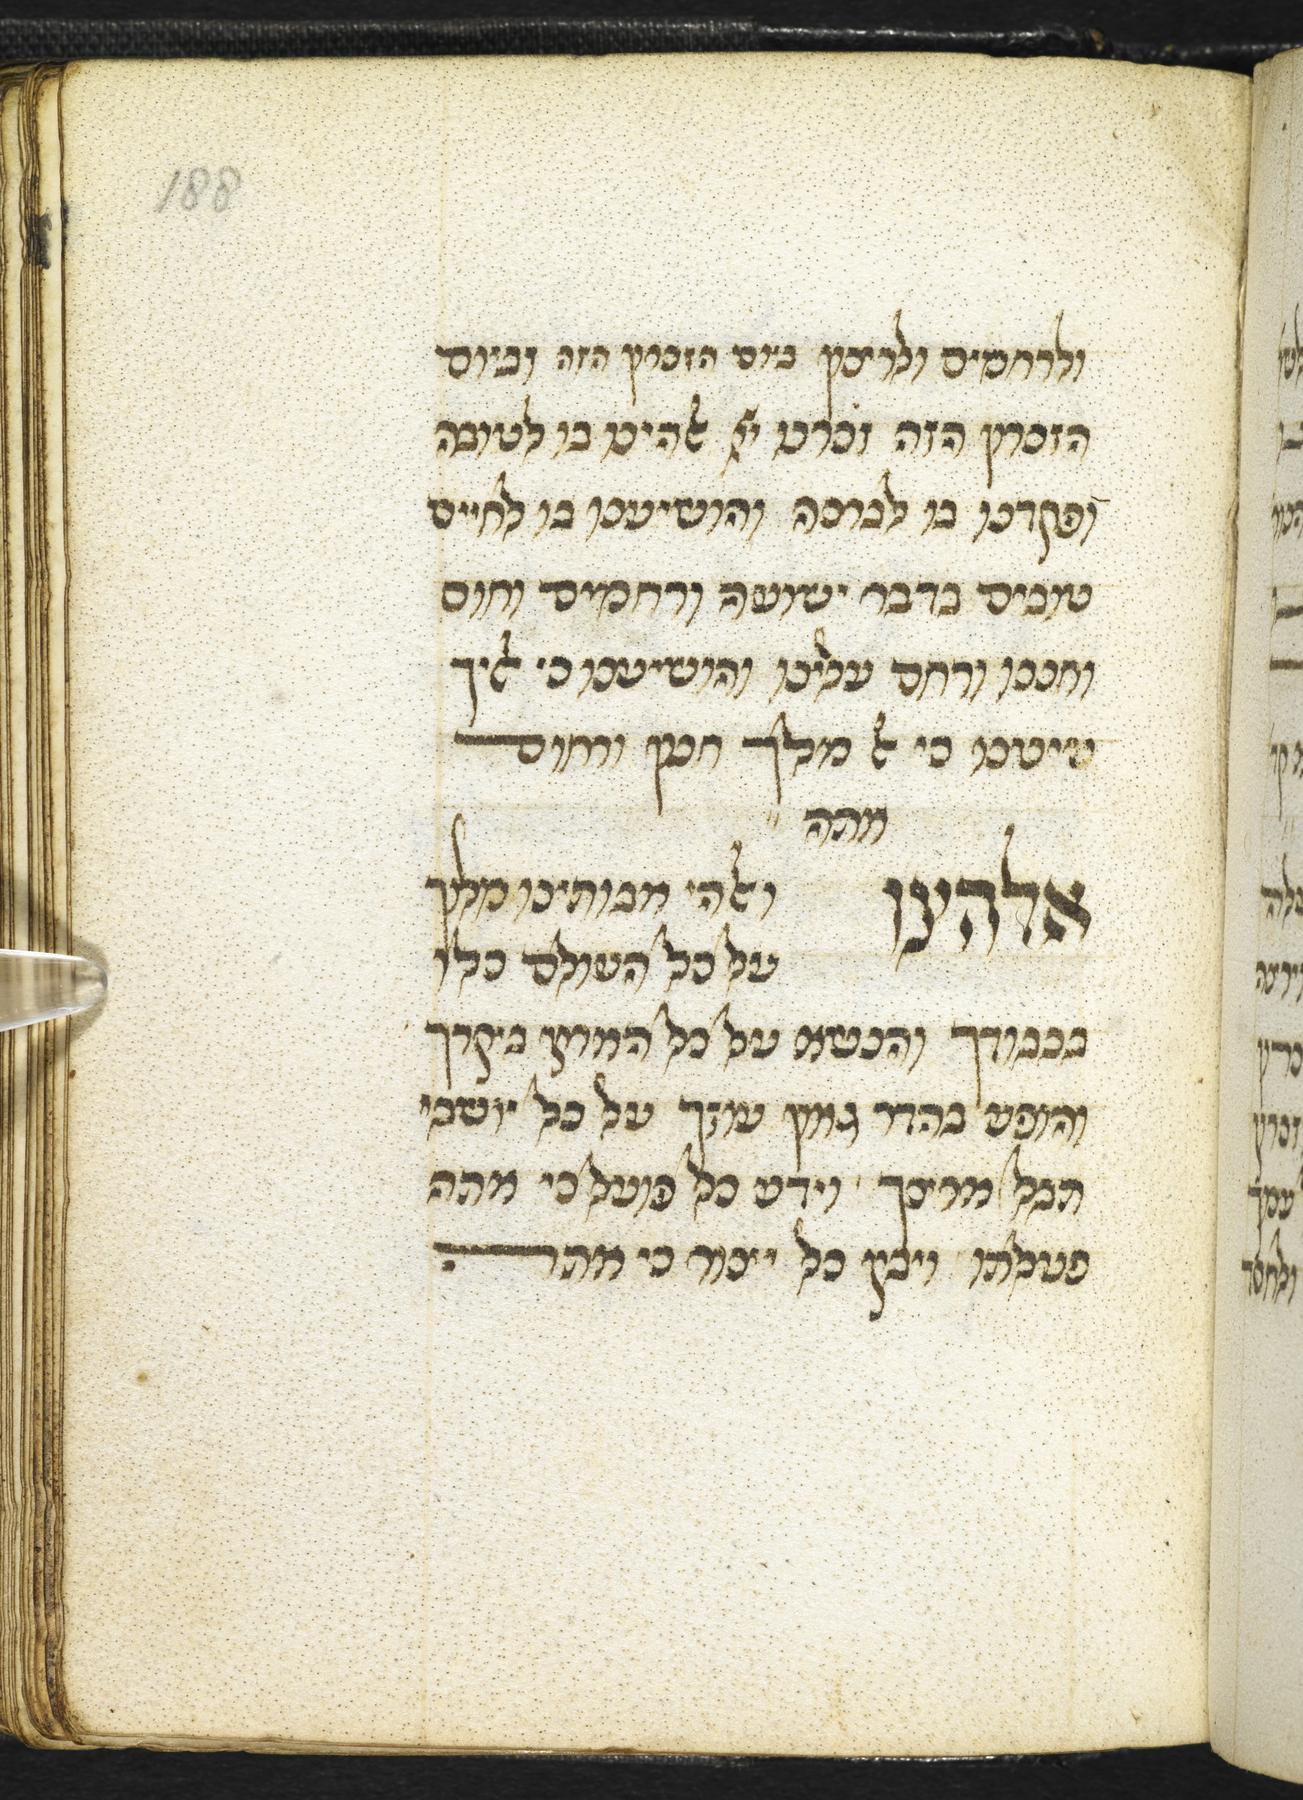 188
ולרחמים ולרצון ביום הזכרון הזה וביום
הזכרון הזה זכרנו יי אלהינו בו לטובה
ופקדנו בו לברכה והושיענו בו לחיים
טובים בדבר ישועה ורחמים וחוס
וחננו ורחם עלינו והושיענו כי אליך
עינינו כי אל מלך חנון ורחום
אתה
אלהינו ואלהי אבותינו מלך
על כל העולם כלו
בכבודך והנשא על כל הארץ ביקרך
והופע בהדר גאון עוזך על כל יושבי
תבל ארצך וידע כל פועל כי אתה
פעלתו ויבין כל ייצור כי אתה